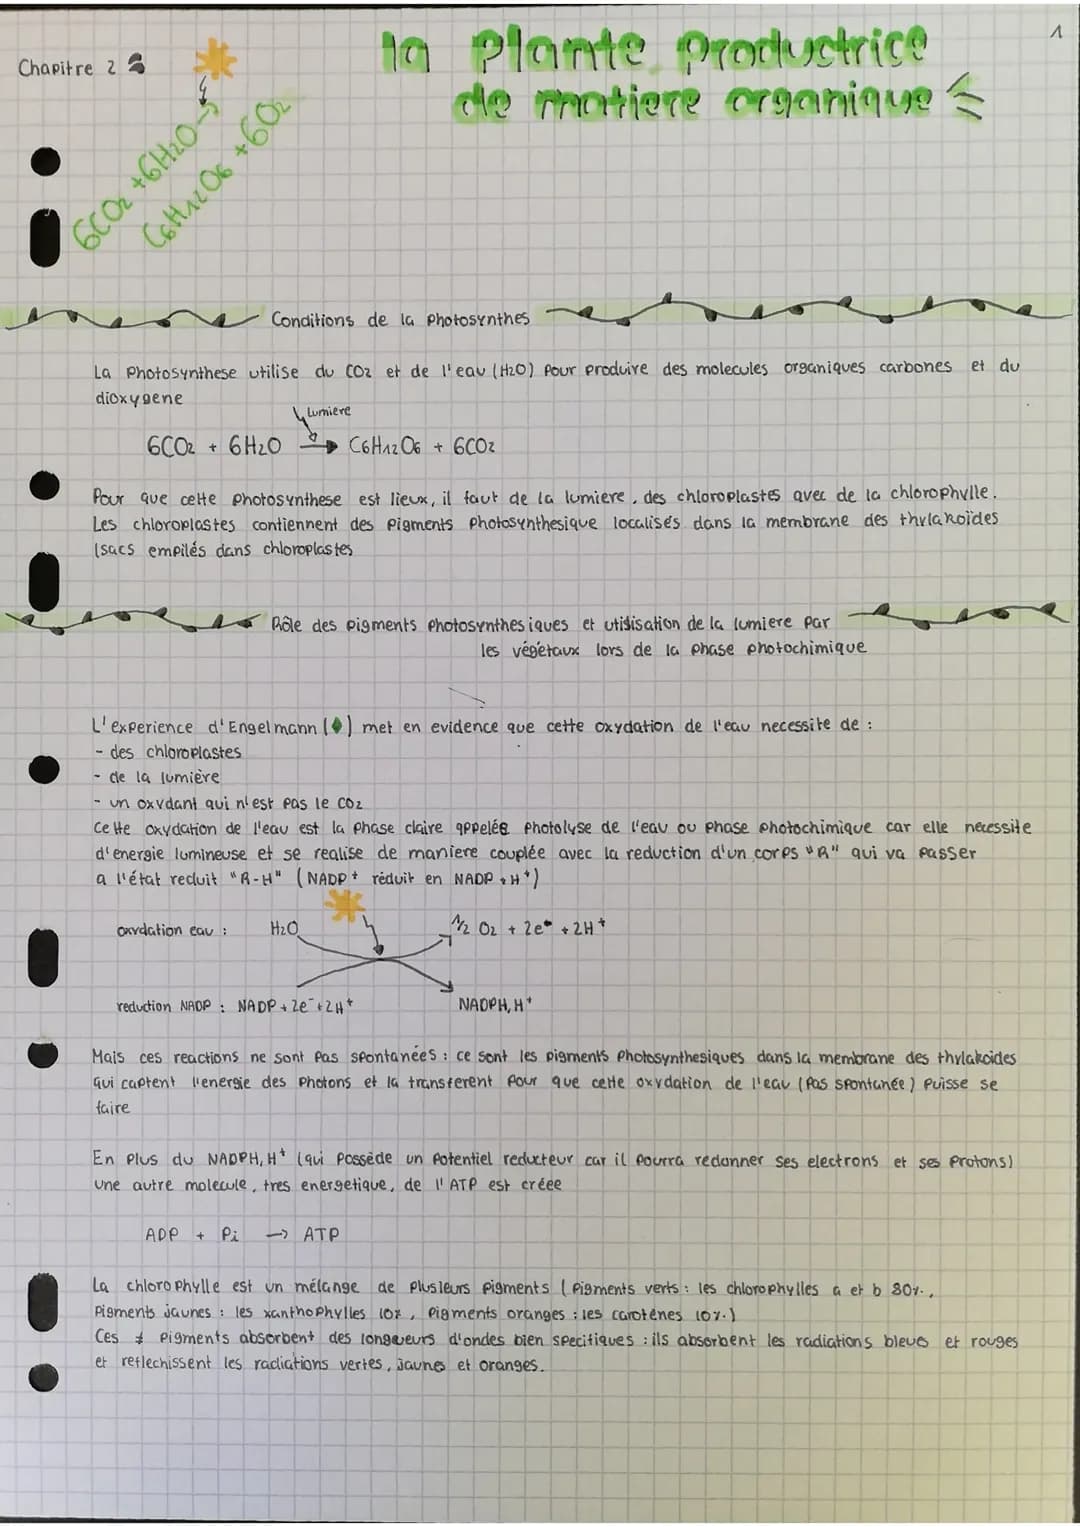 Chapitre 2
la Plante Productrice
de matiere organique
1
6CO2 + 6H2O →
C6H12O6 + 6O2
Conditions de la Photosynthes
La Photosynthese utilise du CO2 et de l'eau (H2O) Pour Produire des molecules organiques carbones et du
dioxygene
Lumiere
6CO2 + 6H2O → C6H12O6 + 6CO2
Pour que cette Photosynthese est lieux, il faut de la lumiere, des chloroplastes avec de la chlorophylle.
Les chloroplastes contiennent des Pigments Photosynthesique localisés dans la membrane des thylakoïdes
(sacs empilés dans chloroplastes
Rôle des Pigments Photosynthesiques et utilisation de la lumiere Par
les végétaux lors de la Phase Photochimique
L'experience d'Engelmann (♦) met en evidence que cette oxydation de l'eau necessite de :
- des chloroplastes
- de la lumière
- un oxydant qui n'est Pas le CO2
Cette oxydation de l'eau est la Phase claire appelée Photolyse de l'eau ou Phase Photochimique car elle necessite
d'energie lumineuse et se realise de maniere couplée avec la reduction d'un corps "R" qui va Passer
a l'état reduit "R-H" (NADP+ réduit en NADP + H+)
oxydation eau : H2O 1/2 O2 + 2e- + 2H+
reduction NADP : NADP + 2e- + 2H+ NADPH, H+
Mais ces reactions ne sont Pas spontanées : ce sont les pigments Photosynthesiques dans la membrane des thylakoides
qui captent l'energie des Photons et la transferent Pour que cette oxydation de l'eau (Pas spontanée) Puisse se
faire
En Plus du NADPH, H+ (qui Possède un Potentiel reducteur car il Pourra redonner ses electrons et ses Protons)
une autre molecule, tres energetique, de l'ATP est créée
ADP + Pi → ATP
La chlorophylle est un mélange de Plusieurs Pigments (Pigments verts : les chlorophylles a et b 80%,
Pigments jaunes : les xanthophylles 10%, Pigments oranges : les carotènes 10%)
Ces ≠ Pigments absorbent des longueurs d'ondes bien specifiques : ils absorbent les radiations bleus et rouges
et reflechissent les radiations vertes, jaunes et oranges.